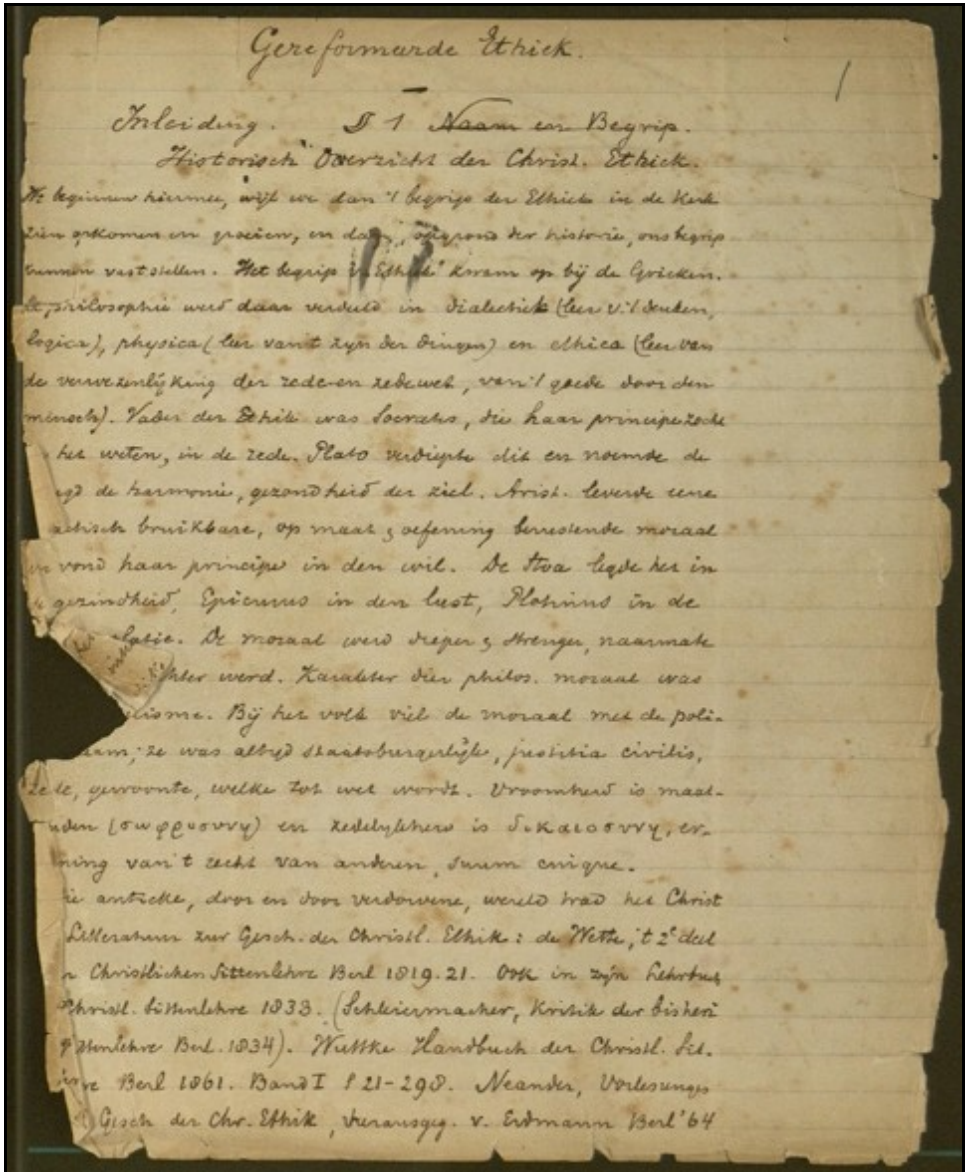 Gereformeerde Ethiek.
1
Inleiding. § 1 Naam en Begrip.
Historisch Overzicht der Christ. Ethiek.
We beginnen hiermee, wijl we dan 't begrip der Ethiek in de Kerk
zien opkomen en groeien, en dan, op grond der historie, ons begrip
kunnen vaststellen. Het begrip v. Ethiek kwam op bij de Grieken.
De philosophie werd daar verdeeld in dialectiek (leer v. 't denken,
logica), physica (leer van 't zijn der dingen) en ethica (leer van
de verwezenlijking der zede en zedewet, van 't goede door den
mensch). Vader der Ethiek was Socrates, die haar principe zocht
het weten, in de rede. Plato verdiepte dit en noemde de
gd de harmonie, gezondheid der ziel. Arist. leverde eene
actisch bruikbare, op maat & oefening berustende moraal
en vond haar principe in den wil. De Stoa legde het in
gezindheid, Epicurus in den lust, Plotinus in de
latie. De moraal werd dieper & strenger, naarmate
chter werd. Karakter dier philos. moraal was
lisme. Bij het volk viel de moraal met de poli-
zaam; ze was altijd staatsburgerlijk, justitia civilis,
zede, gewoonte, welke tot wet wordt. Vroomheid is maat-
uden (σωφρυσυνη) en zedelijkheid is δικαιοσυνη, er-
ning van 't recht van anderen, suum cuique.
ie antieke, door en door verdorvene, wereld trad het Christ
Litteratur zur Gesch. der Christl. Ethik: de Wette, 't 2e deel
r Christlichen Sittenlehre Berl 1819.21. Ook in zijn Lehrbuch
Christl. Sittenlehre 1833. (Schleiermacher, Kritik der bisheri
Sittenlehre Berl. 1834). Wuttke Handbuch der Christl. Sit.
re Berl 1861. Band I S 21-298. Neander, Vorlesungen
Gesch der Chr. Ethik, herausgeg. v. Erdmann Berl '64